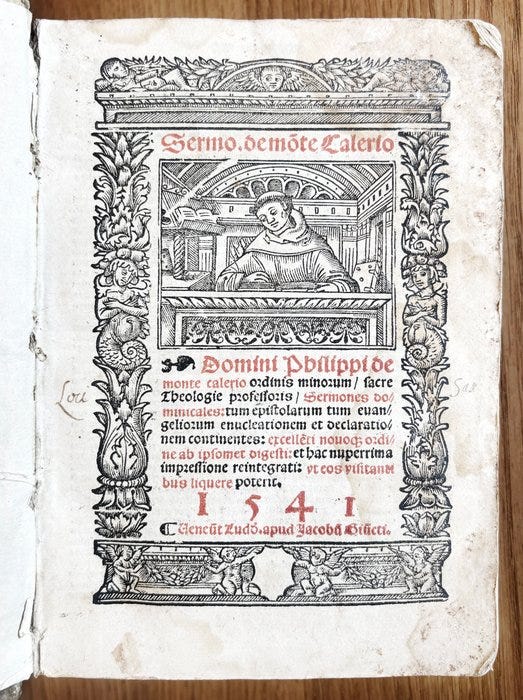 Sermo. de mõte Calerio
Domini Philippi de
monte calerio ordinis minorum / sacre
Theologie professoris / Sermones do-
minicales: tum epistolarum tum euan-
geliorum enucleationem et declaratio-
nem continentes: excellẽti nouoq; ordi-
ne ab ipsomet digesti: et hac nuperrima
impressione reintegrati: vt eos visitanti
bus liquere poterit.
1541
Veneũt Lugd. apud Jacobũ Giũcti.
Lou